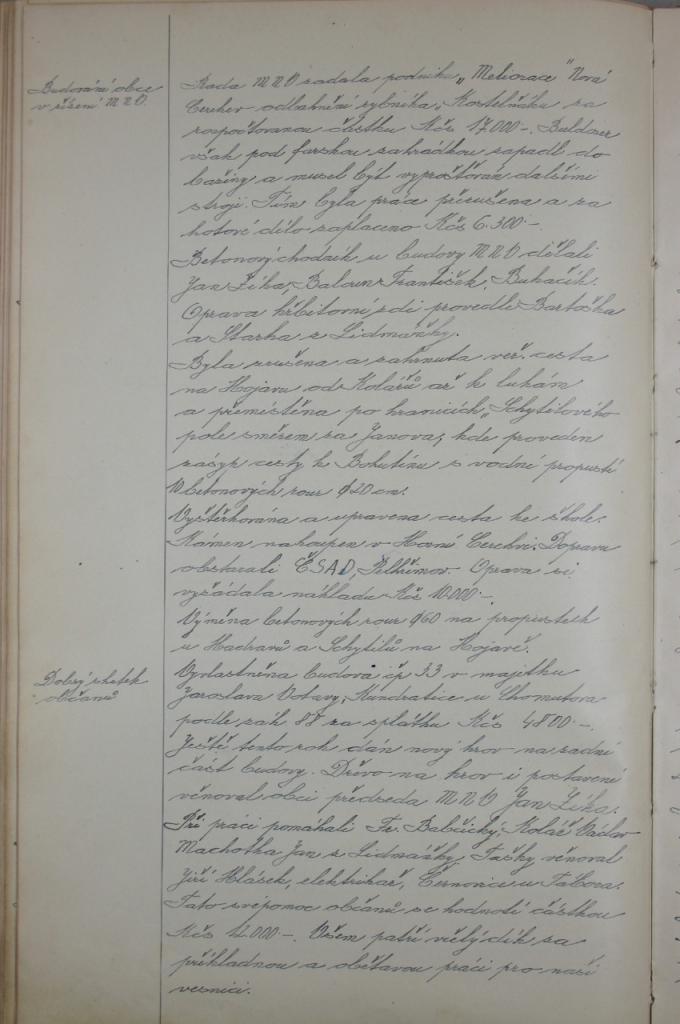 Budování obce
v řízení MNV.
Rada MNV zadala podniku „Meliorace" Nová
Cerekev odbahnění rybníka „Kostelňáku za
rozpočtovanou částku Kčs 17.000-. Buldozer
však pod farskou zahrádkou zapadl do
bažiny a musel být vyprošťován dalšími
stroji. Tím byla práce přerušena a za
hotové dílo zaplaceno Kčs 6.300-.
Betonový chodník u budovy MNV dělali
Jan Žika, Baloun František, Buhačík.
Oprava hřbitovní zdi provedli Bartoška
a Stazka z Lidmaňky.
Byla zrušena a zahrnuta veř. cesta
na Hojavu od Kolářů až k luhám
a přemístěna po hranicích „Schytilového
pole směrem za Janova, kde proveden
zásyp cesty k Bohutínu s vodní propustí
10 betonových rour φ 20 cm.
Vyštěrkována a upravena cesta ke škole.
Kámen nakoupen v Horní Cerekvi. Dopravu
obstarali ČSAD, Pelhřimov. Oprava si
vyžádala nákladu Kčs 10.000-.
Výměna betonových rour φ60 na propustech
u Hadravů a Schytilů na Hojavě.
Dobrý skutek
občanů
Vyvlastněna budova čp 33 v majetku
Jaroslava Votavy, Kundratice u Chomutova
podle zák 88 za splátku Kčs 4800-.
Ještě tento rok dán nový krov na zadní
část budovy. Dřevo na krov i postavení
věnoval obci předseda MNV Jan Žika.
Při práci pomáhali Fr. Babčický, Kolář Václav
Machotka Jan z Lidmaňky, Tašky věnoval
Jiří Hlásek, elektrikář, Černovice u Tábora.
Tato svépomoc občanů se hodnotí částkou
Kčs 12.000-. Všem patří vřelý dík za
příkladnou a obětavou práci pro naši
vesnici.